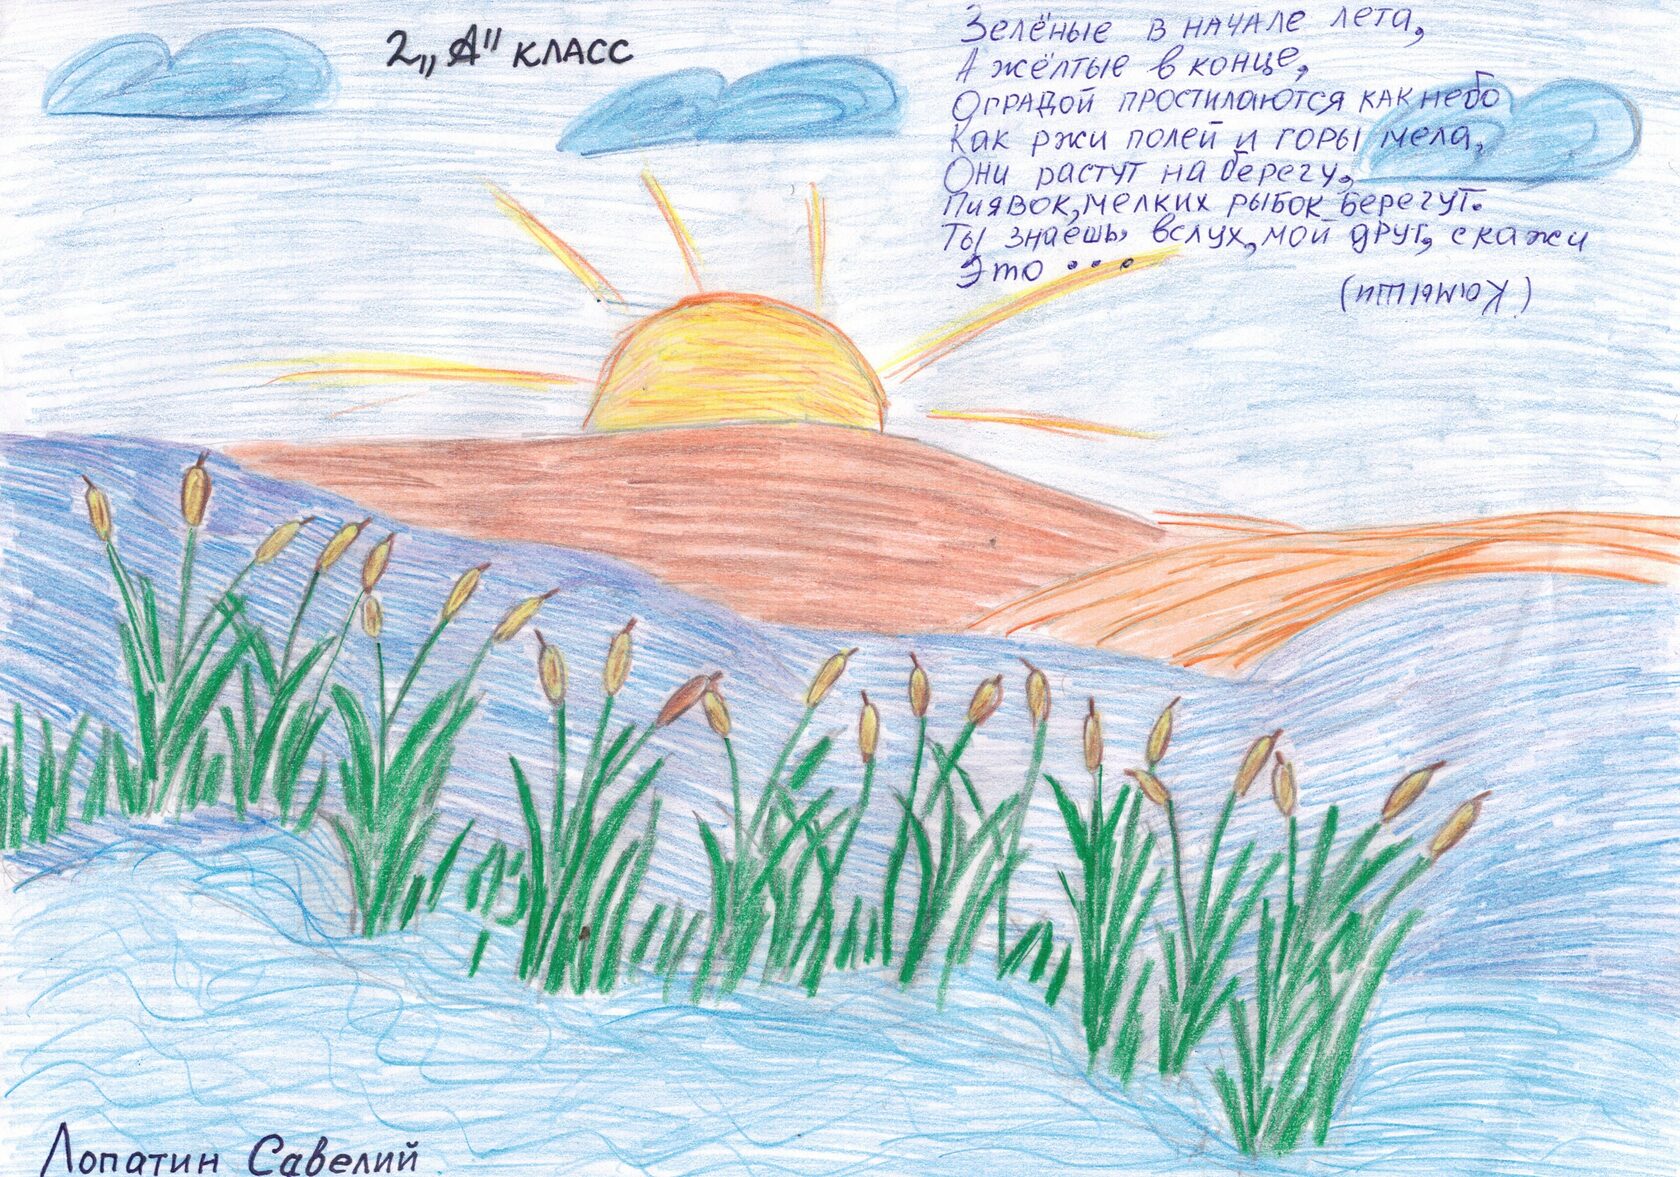 2 „А" класс
Зелёные в начале лета,
А жёлтые в конце,
Оградой простилаются как небо
Как ржи полей и горы мела,
Они растут на берегу,
Пиявок, мелких рыбок берегут.
Ты знаешь, вслух, мой друг, скажи
Это ...
(Камыши)
Лопатин Савелий